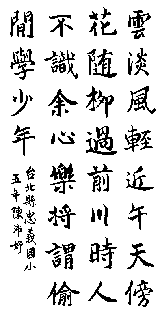 雲淡風輕近午天傍
花随柳過前川時人
不識余心樂将謂偷
閒學少年
台北縣忠義國小
五年陳沛妤